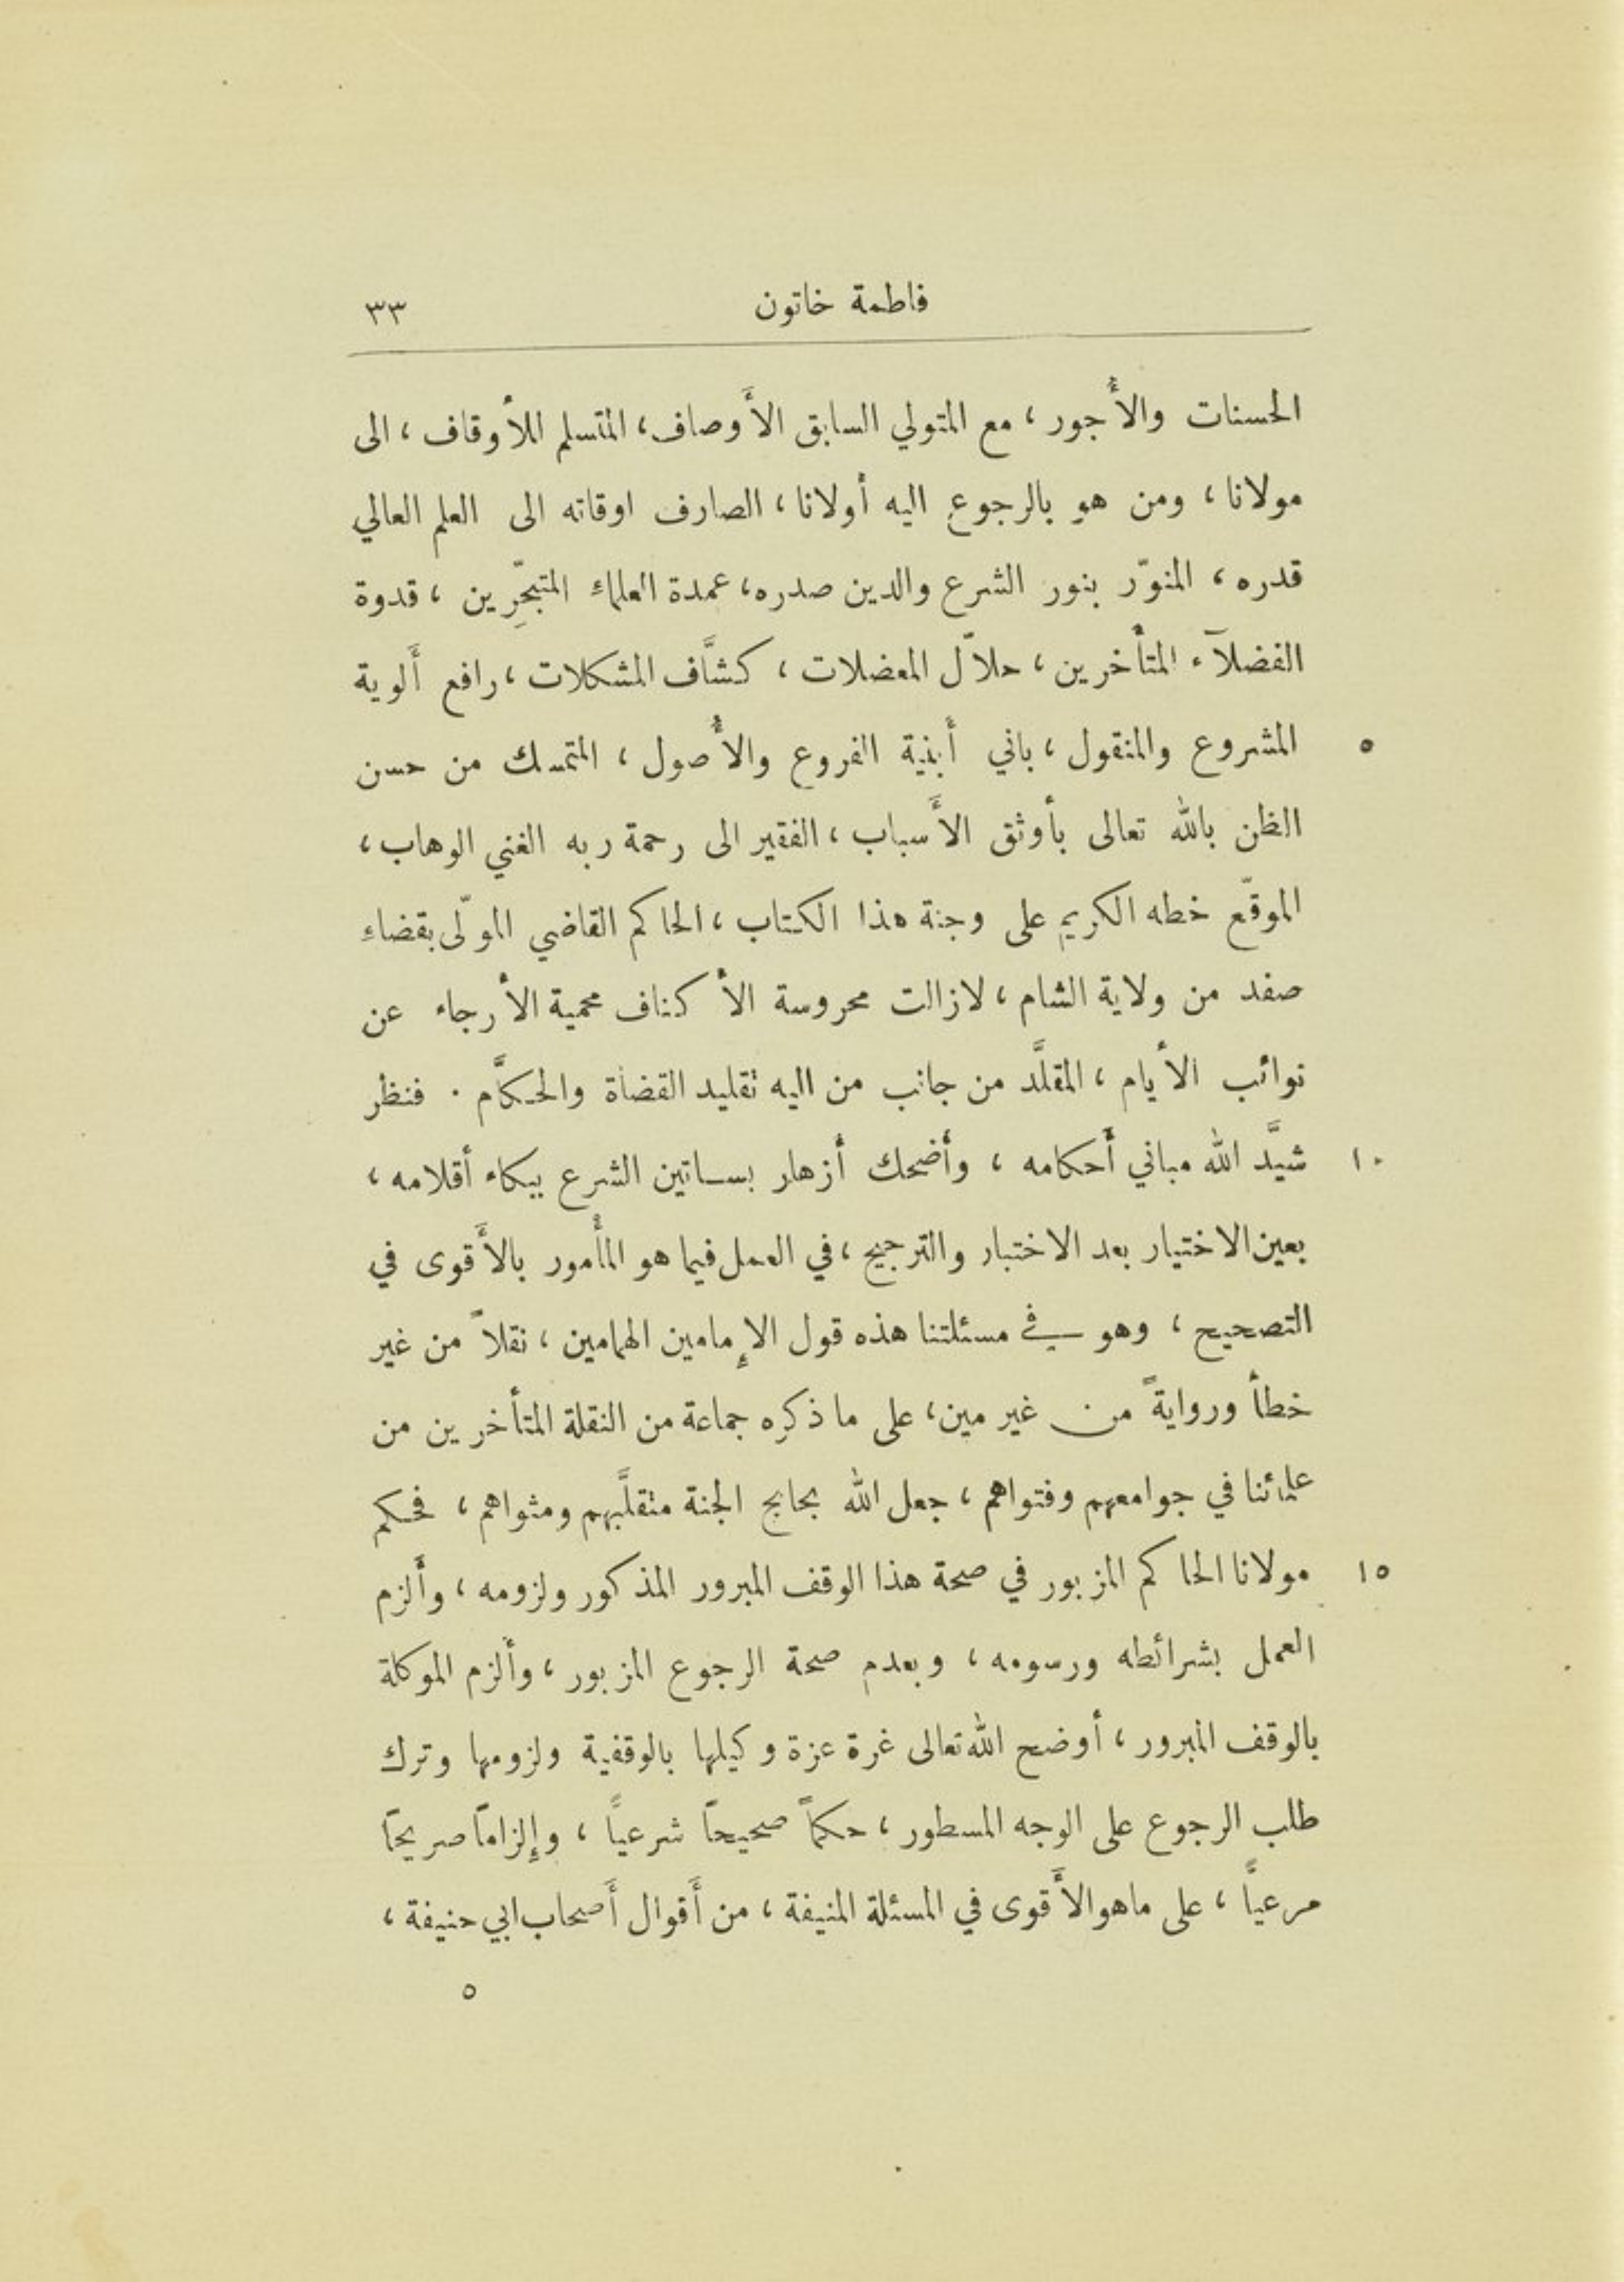 فاطمة خاتون ٣٣
الحسنات والأُجور ، مع المتولي السابق الأَوصاف ، المتسلم للأوقاف ، الى
مولانا ، ومن هو بالرجوع اليه أولانا ، الصارف اوقاته الى العلم العالي
قدره ، المنوّر بنور الشرع والدين صدره ، عمدة العلماء المتبحّرِين ، قدوة
الفضلآء المتأخرين ، حلاّل المعضلات ، كشَّاف المشكلات ، رافع أَلوية
المشروع والمنقول ، باني أَبنية الفروع والأُصول ، المتمسك من حسن ٥
الظن بالله تعالى بأوثق الأَسباب ، الفقير الى رحمة ربه الغني الوهاب ،
الموقّع خطه الكريم على وجنة هذا الكتاب ، الحاكم القاضي المولّى بقضاء
صفد من ولاية الشام ، لازالت محروسة الأكناف محمية الأرجاء عن
نوائب الأيام ، المقلَّد من جانب من اليه تقليد القضاة والحكَّام . فنظر
شيَّد الله مباني أَحكامه ، وأضحك أزهار بساتين الشرع ببكاء أقلامه ، ١٠
بعين الاختيار بعد الاختبار والترجيح ، في العمل فيما هو المأمور بالأَقوى في
التصحيح ، وهو في مسئلتنا هذه قول الإمامين الهمامين ، نقلاً من غير
خطأ وروايةً من غير مين ، على ما ذكره جماعة من النقلة المتأخرين من
علمائنا في جوامعهم وفتواهم ، جعل الله بحابح الجنة متقلَّبهم ومثواهم ، فحكم
مولانا الحاكم المزبور في صحة هذا الوقف المبرور المذكور ولزومه ، وأَلزم ١٥
العمل بشرائطه ورسومه ، وبعدم صحة الرجوع المزبور ، وألزم الموكلة
بالوقف المبرور ، أوضح الله تعالى غرة عزة وكيلها بالوقفية ولزومها وترك
طلب الرجوع على الوجه المسطور ، حكماً صحيحاً شرعياً ، وإلزاماً صريحاً
مرعياً ، على ماهو الأَقوى في المسئلة المنيفة ، من أَقوال أَصحاب ابي حنيفة ،
٥